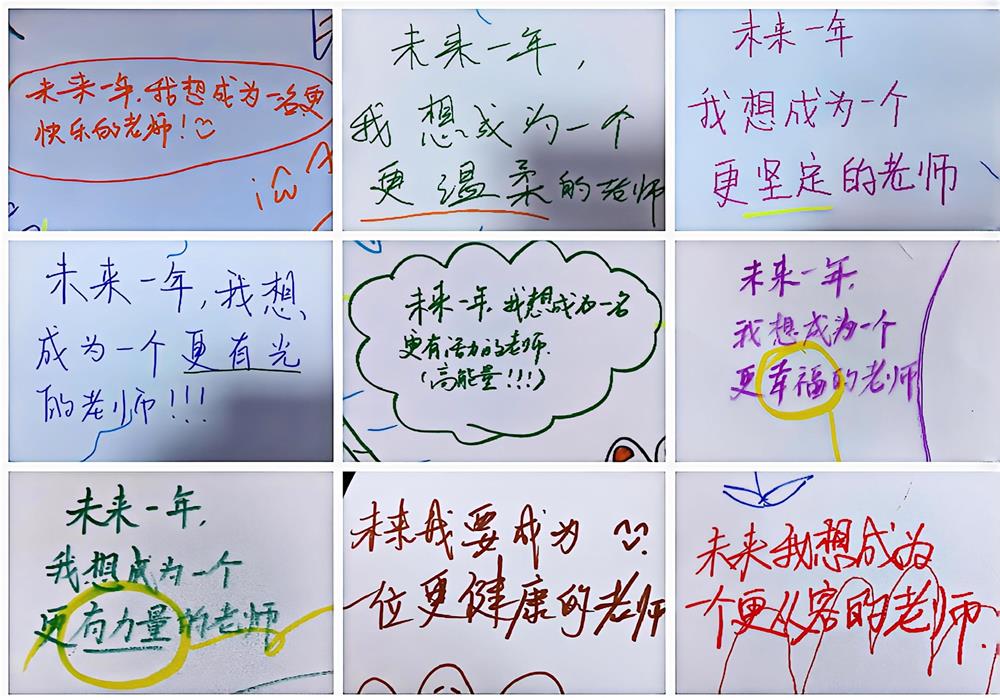 未来一年,我想成为一名更
快乐的老师!
未来一年,
我想成为一个
更温柔的老师
未来一年
我想成为一个
更坚定的老师
未来一年,我想
成为一个更有光
的老师!!!
未来一年,我想成为一名
更有活力的老师.
(高能量!!!)
未来一年,
我想成为一个
更幸福的老师
未来一年,
我想成为一个
更有力量的老师
未来我要成为
一位更健康的老师
未来我想成为
一个更从容的老师.